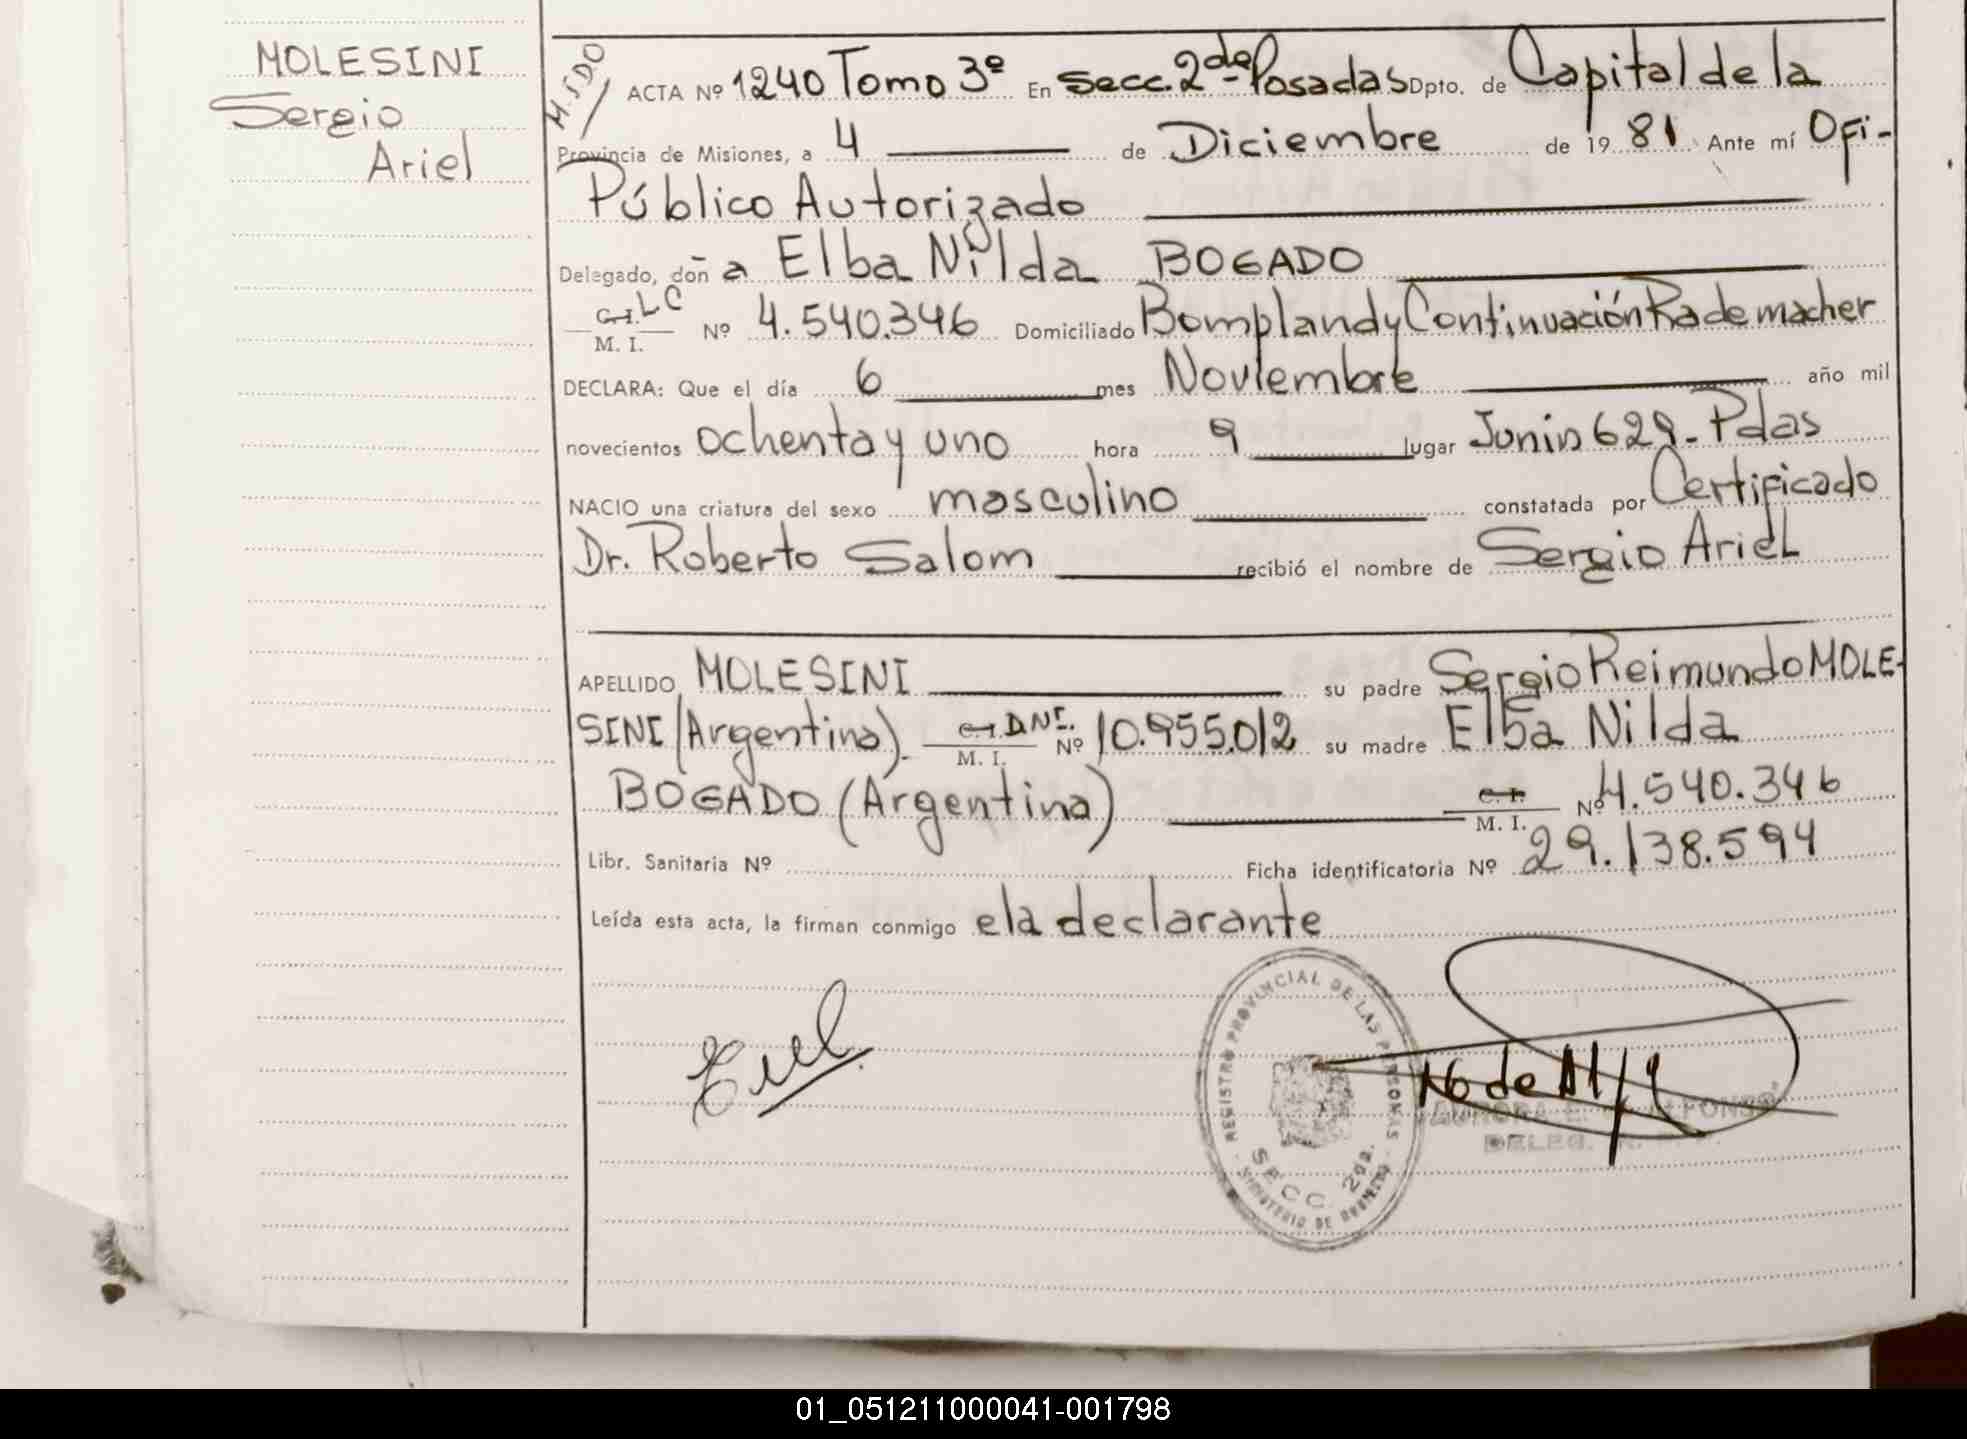 MOLESINI
Sergio
Ariel
M.SDO
ACTA Nº 1240 Tomo 3º En Secc. 2da - Posadas Dpto. de Capital de la
Provincia de Misiones, a 4 de Diciembre de 19 81 Ante mí Ofi-
Público Autorizado
Delegado, don a Elba Nilda BOGADO
C.I. LC
M. I. Nº 4.540.346 Domiciliado Bompland y Continuación Rademacher
DECLARA: Que el día 6 mes Noviembre año mil
novecientos ochenta y uno hora 9 lugar Junin 629 - Pdas
NACIO una criatura del sexo masculino constatada por Certificado
Dr. Roberto Salom recibió el nombre de Sergio Ariel
APELLIDO MOLESINI su padre Sergio Reimundo MOLE-
SINI (Argentino). C.I. DNI. M. I. Nº 10.955.012 su madre Elba Nilda
BOGADO (Argentina) C. I. M. I. Nº 4.540.346
Libr. Sanitaria Nº Ficha identificatoria Nº 29.138.594
Leída esta acta, la firman conmigo ela declarante
REGISTRO PROVINCIAL DE LAS PERSONAS
SECC. 2da.
MINISTERIO DE GOBIERNO
DELEG.
01_051211000041-001798